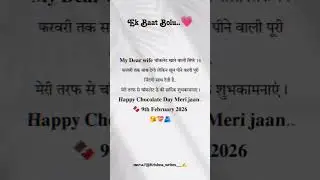 Ek Baat Bolu..🩷
My Dear wife चॉकलेट खाने वाली सिर्फ ११
फरवरी तक साथ देगी लेकिन खून पीने वाली पूरी
जिंदगी साथ देती है..
मेरी तरफ से चॉकलेट डे की हार्दिक शुभकामनाएं ।
Happy Chocolate Day Meri jaan..
🍫 9th February 2026
फरवरी तक साथ देने वाली पूरी